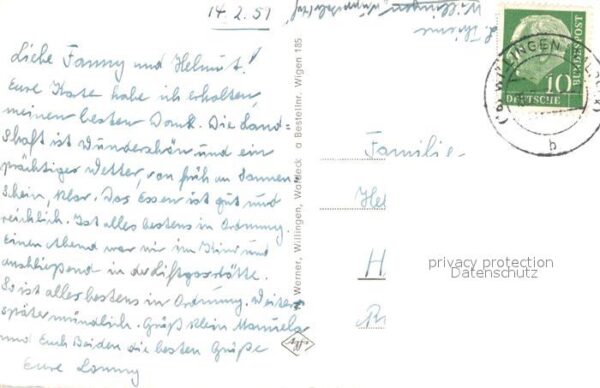 14.2.57
Liebe Fanny und Helmut!
Eure Karte habe ich erhalten,
meinen besten Dank. Die Land=
schaft ist wunderschön und ein
prächtiges Wetter, von früh an Sonnen-
schein, klar. Das Essen ist gut und
reichlich. Ist alles bestens in Ordnung.
Einen Abend war wir im Kino und
anschließend in der Liftgaststätte.
So ist alles bestens in Ordnung. Weiteres
später mündlich. Grüß klein Manuela
und Euch Beiden die besten Grüße
Eure
Werner, Willingen, Waldeck a Bestellnr. Wigen 185
Agfa
Willingen
DEUTSCHE BUNDESPOST
10
WILLINGEN
b
Familie
He
H
privacy protection
Datenschutz